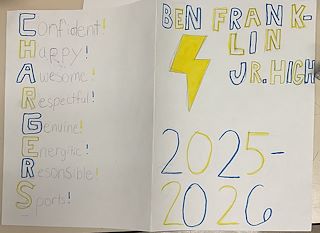 Confident!
Happy!
Awesome!
Respectful!
Genuine!
Energitic!
Resonsible!
Sports!
BEN FRANK-
LIN
JR. HIGH
2025-
2026